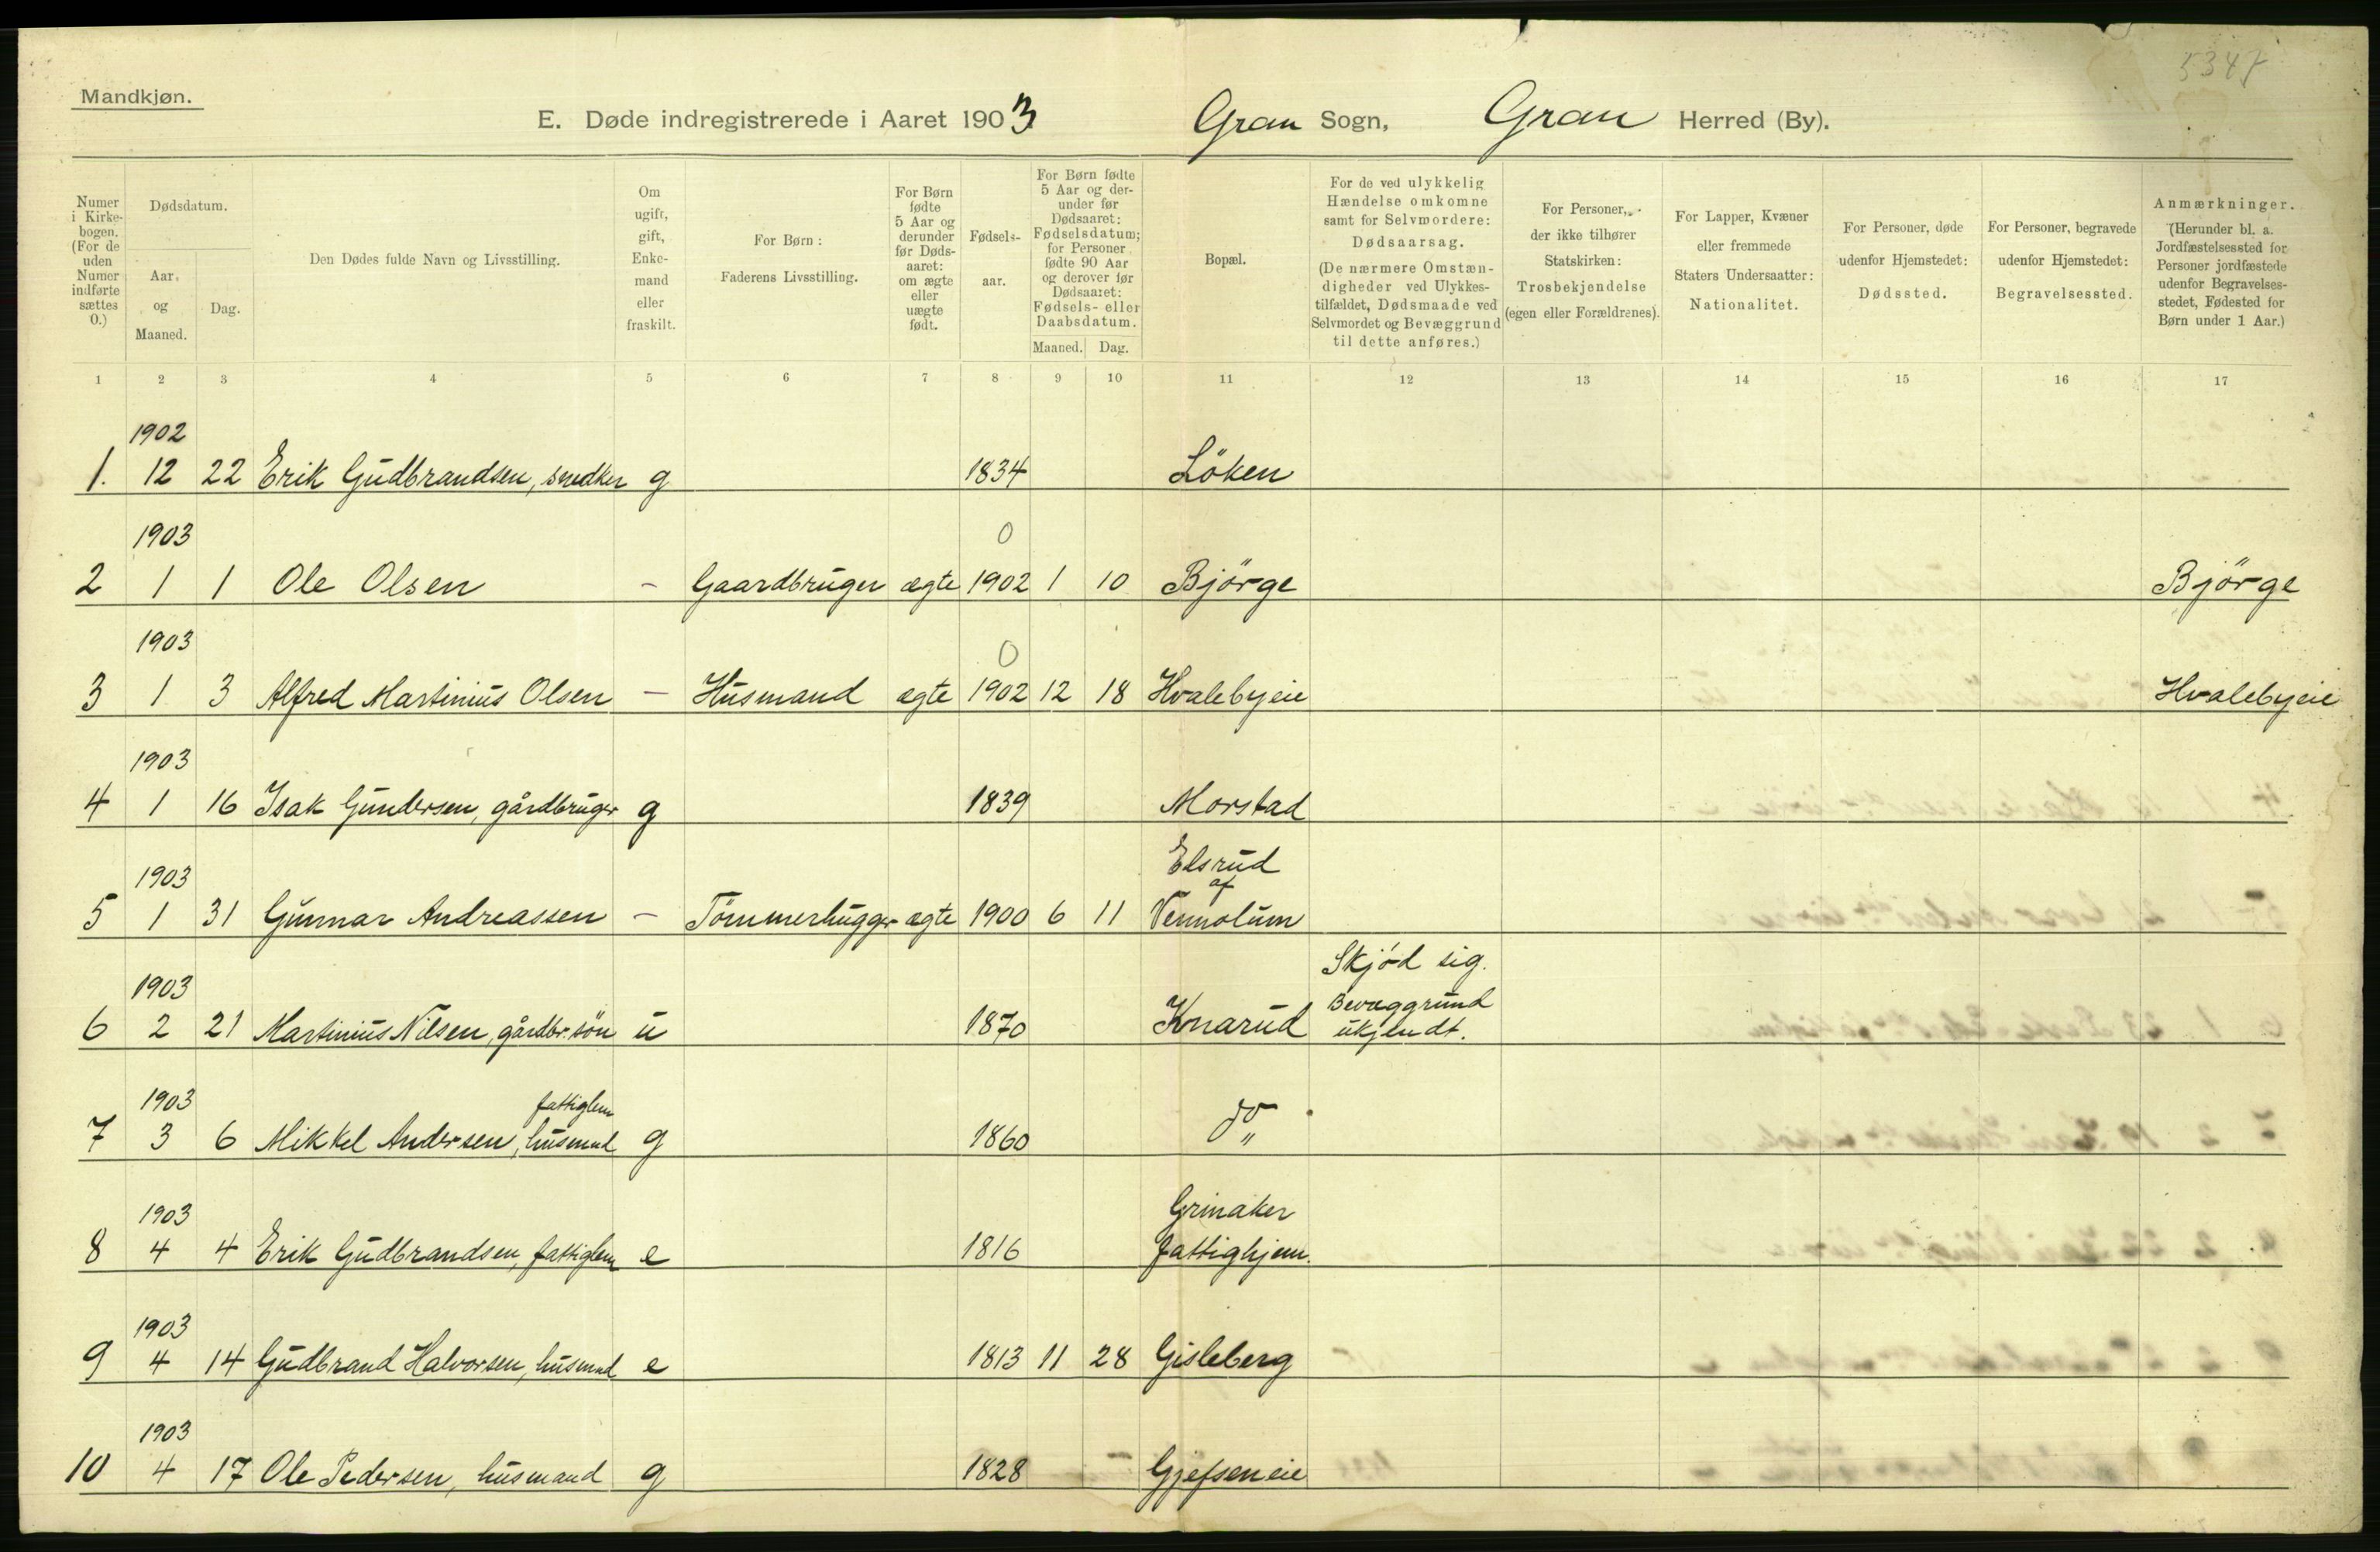 5347
Mandkjøn.
E. Døde indregistrerede i Aaret 1903 Gran Sogn, Gran Herred (By).
Numer i Kirke-bogen. (For de uden Numer indførte sættes 0.)
Dødsdatum.
Aar, og Maaned.
Dag.
Den Dødes fulde Navn og Livsstilling.
Om ugift, gift, Enke-mand eller fraskilt.
For Børn: Faderens Livsstilling.
For Børn fødte 5 Aar og derunder før Døds-aaret: om ægte eller uægte født.
Fødsels-aar.
For Børn fødte 5 Aar og der-under før Dødsaaret: Fødselsdatum; for Personer fødte 90 Aar og derover før Dødsaaret: Fødsels- eller Daabsdatum.
Maaned. Dag.
Bopæl.
For de ved ulykkelig Hændelse omkomne samt for Selvmordere: Dødsaarsag. (De nærmere Omstæn-digheder ved Ulykkes-tilfældet, Dødsmaade ved Selvmordet og Bevæggrund til dette anføres.)
For Personer, der ikke tilhører Statskirken: Trosbekjendelse (egen eller Forældrenes).
For Lapper, Kvæner eller fremmede Staters Undersaatter: Nationalitet.
For Personer, døde udenfor Hjemstedet: Dødssted.
For Personer, begravede udenfor Hjemstedet: Begravelsessted.
Anmærkninger. (Herunder bl. a. Jordfæstelsessted for Personer jordfæstede udenfor Begravelses-stedet, Fødested for Børn under 1 Aar.)
1 2 3 4 5 6 7 8 9 10 11 12 13 14 15 16 17
1902
1. 12 22 Erik Gudbrandsen, snedker g 1834 Löken
1903 0
2 1 1 Ole Olsen - Gaardbruger ægte 1902 1 10 Björge Björge
1903 0
3 1 3 Alfred Martinius Olsen - Husmand ægte 1902 12 18 Hvalebyeie Hvalebyeie
1903
4 1 16 Isak Gundersen, gårdbruger g 1839 Morstad
1903 Elsrud af
5 1 31 Gunnar Andreassen - Tömmerhugger ægte 1900 6 11 Vennolum
1903 Skjöd sig. Bevæggrund
6 2 21 Martinius Nilsen, gårdbr. sön u 1870 Knarud ukjendt.
1903 fattiglem
7 3 6 Mikkel Andersen, husmnd g 1860 do "
1903 Grinaker
8 4 4 Erik Gudbrandsen, fattiglem e 1816 fattighjem.
1903
9 4 14 Gudbrand Halvorsen, husmnd e 1813 11 28 Gisleberg
1903
10 4 17 Ole Pedersen, husmand g 1828 Gjefseneie